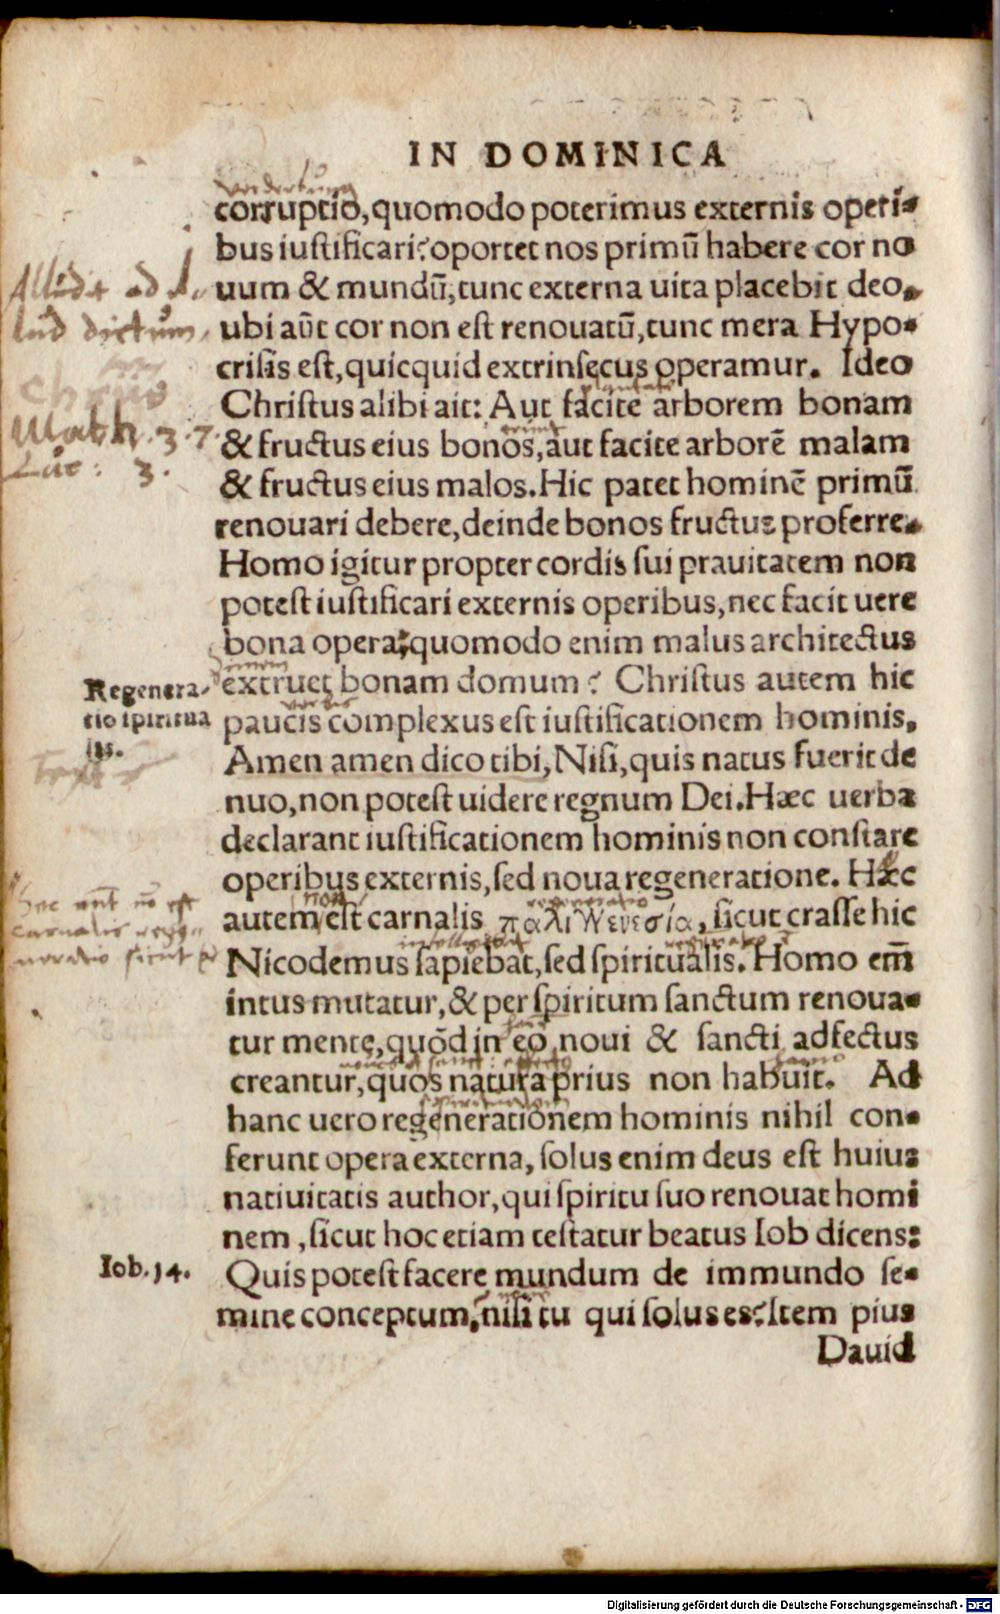 IN DOMINICA
corruptio, quomodo poterimus externis operi-
bus iustificari? oportet nos primū habere cor no
uum & mundū, tunc externa uita placebit deo,
ubi aūt cor non est renouatū, tunc mera Hypo-
crisis est, quicquid extrinsecus operamur. Ideo
Christus alibi ait: Aut facite arborem bonam
& fructus eius bonos, aut facite arborē malam
& fructus eius malos. Hic patet hominē primū
renouari debere, deinde bonos fructus proferre.
Homo igitur propter cordis sui prauitatem non
potest iustificari externis operibus, nec facit uere
bona opera; quomodo enim malus architectus
extruet bonam domum? Christus autem hic
paucis complexus est iustificationem hominis,
Amen amen dico tibi, Nisi, quis natus fuerit de
nuo, non potest uidere regnum Dei. Hæc uerba
declarant iustificationem hominis non constare
operibus externis, sed noua regeneratione. Hæc
autem est carnalis παλιγγενεσία, sicut crasse hic
Nicodemus sapiebat, sed spiritualis. Homo em̄
intus mutatur, & per spiritum sanctum renoua-
tur mente, quōd in eo noui & sancti adfectus
creantur, quos natura prius non habuit. Ad
hanc uero regenerationem hominis nihil con-
ferunt opera externa, solus enim deus est huius
natiuitatis author, qui spiritu suo renouat homi
nem, sicut hoc etiam testatur beatus Iob dicens:
Quis potest facere mundum de immundo se-
mine conceptum, nisi tu qui solus es? Item pius
Dauid
Math. 3. 7.
Luc: 3.
Regenera-
tio spiritua
lis.
non
Iob. 14.
Digitalisierung gefördert durch die Deutsche Forschungsgemeinschaft - DFG